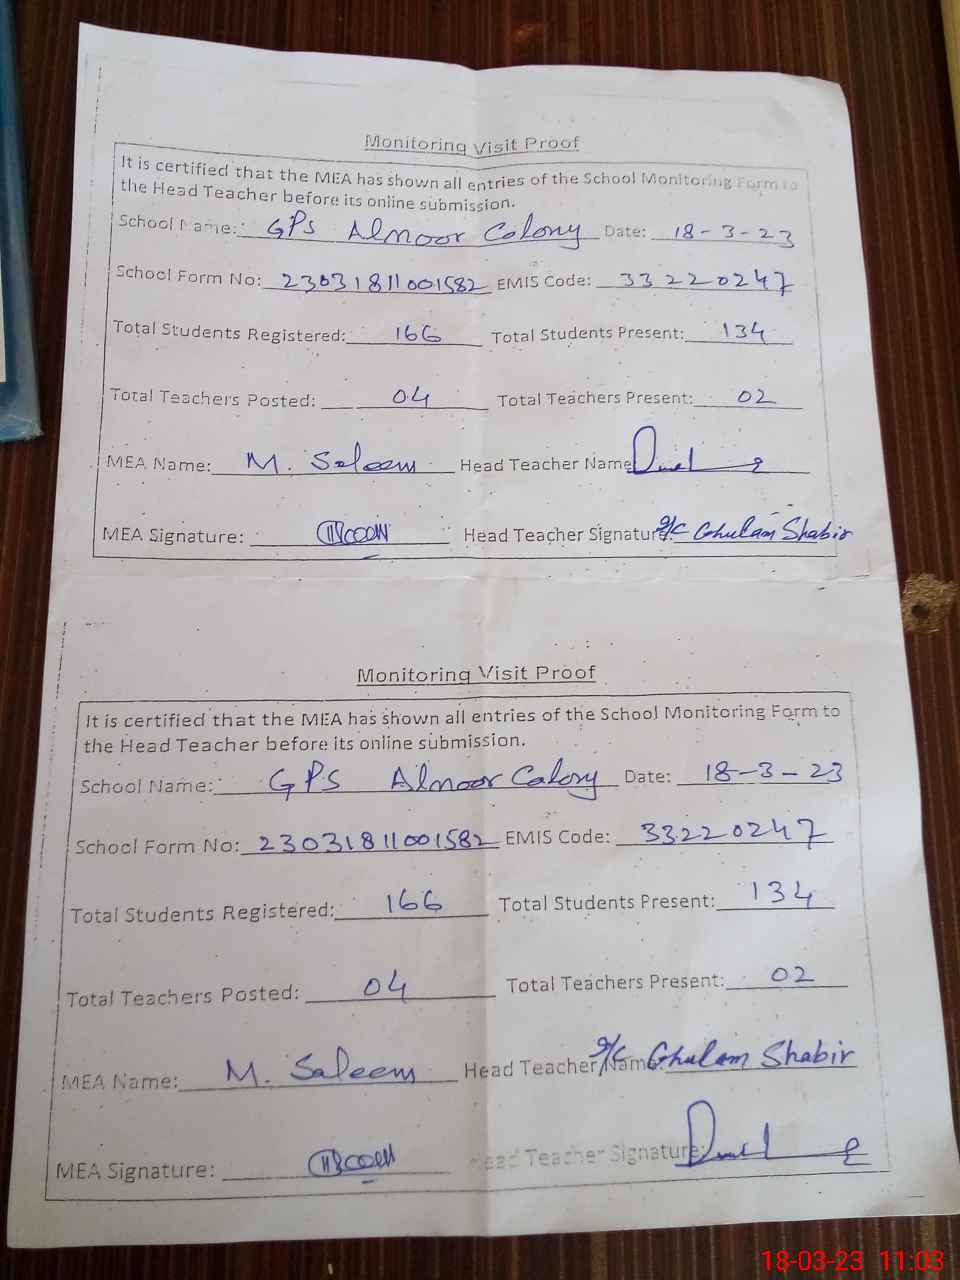 Monitoring Visit Proof
It is certified that the MEA has shown all entries of the School Monitoring Form to
the Head Teacher before its online submission.
School Name: GPS Alnoor Colony Date: 18-3-23
School Form No: 23031811001582 EMIS Code: 33220247
Total Students Registered: 166 Total Students Present: 134
Total Teachers Posted: 04 Total Teachers Present: 02
MEA Name: M. Saleem Head Teacher Name
MEA Signature: Head Teacher Signature: I/C Ghulam Shabir
Monitoring Visit Proof
It is certified that the MEA has shown all entries of the School Monitoring Form to
the Head Teacher before its online submission.
School Name: GPS Alnoor Colony Date: 18-3-23
School Form No: 23031811001582 EMIS Code: 33220247
Total Students Registered: 166 Total Students Present: 134
Total Teachers Posted: 04 Total Teachers Present: 02
MEA Name: M. Saleem Head Teacher Name: I/C Ghulam Shabir
MEA Signature: Head Teacher Signature:
18-03-23 11:03